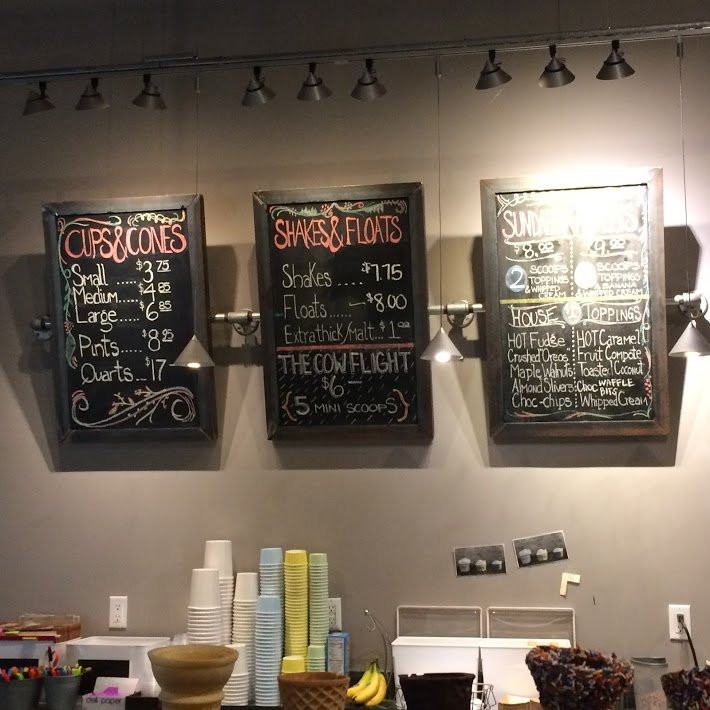 CUPS & CONES
Small ..... $3 75
Medium..... $4 85
Large..... $6 85
Pints..... $8 25
Quarts..... $17
SHAKES & FLOATS
Shakes ..... $7.75
Floats ..... $8.00
Extra thick/malt..
THE COW FLIGHT
$6
{5 MINI SCOOPS}
$8.00
2 SCOOPS
TOPPINGS
& WHIPPED
CREAM
SCOOPS
TOPPINGS
BANANA
& WHIPPED CREAM
HOUSE TOPPINGS
HOT Fudge
Crushed Oreos
Maple Walnuts
Almond Slivers
Choc-chips
HOT Caramel
Fruit Compote
Toasted Coconut
Choc WAFFLE
BITS
Whipped Cream